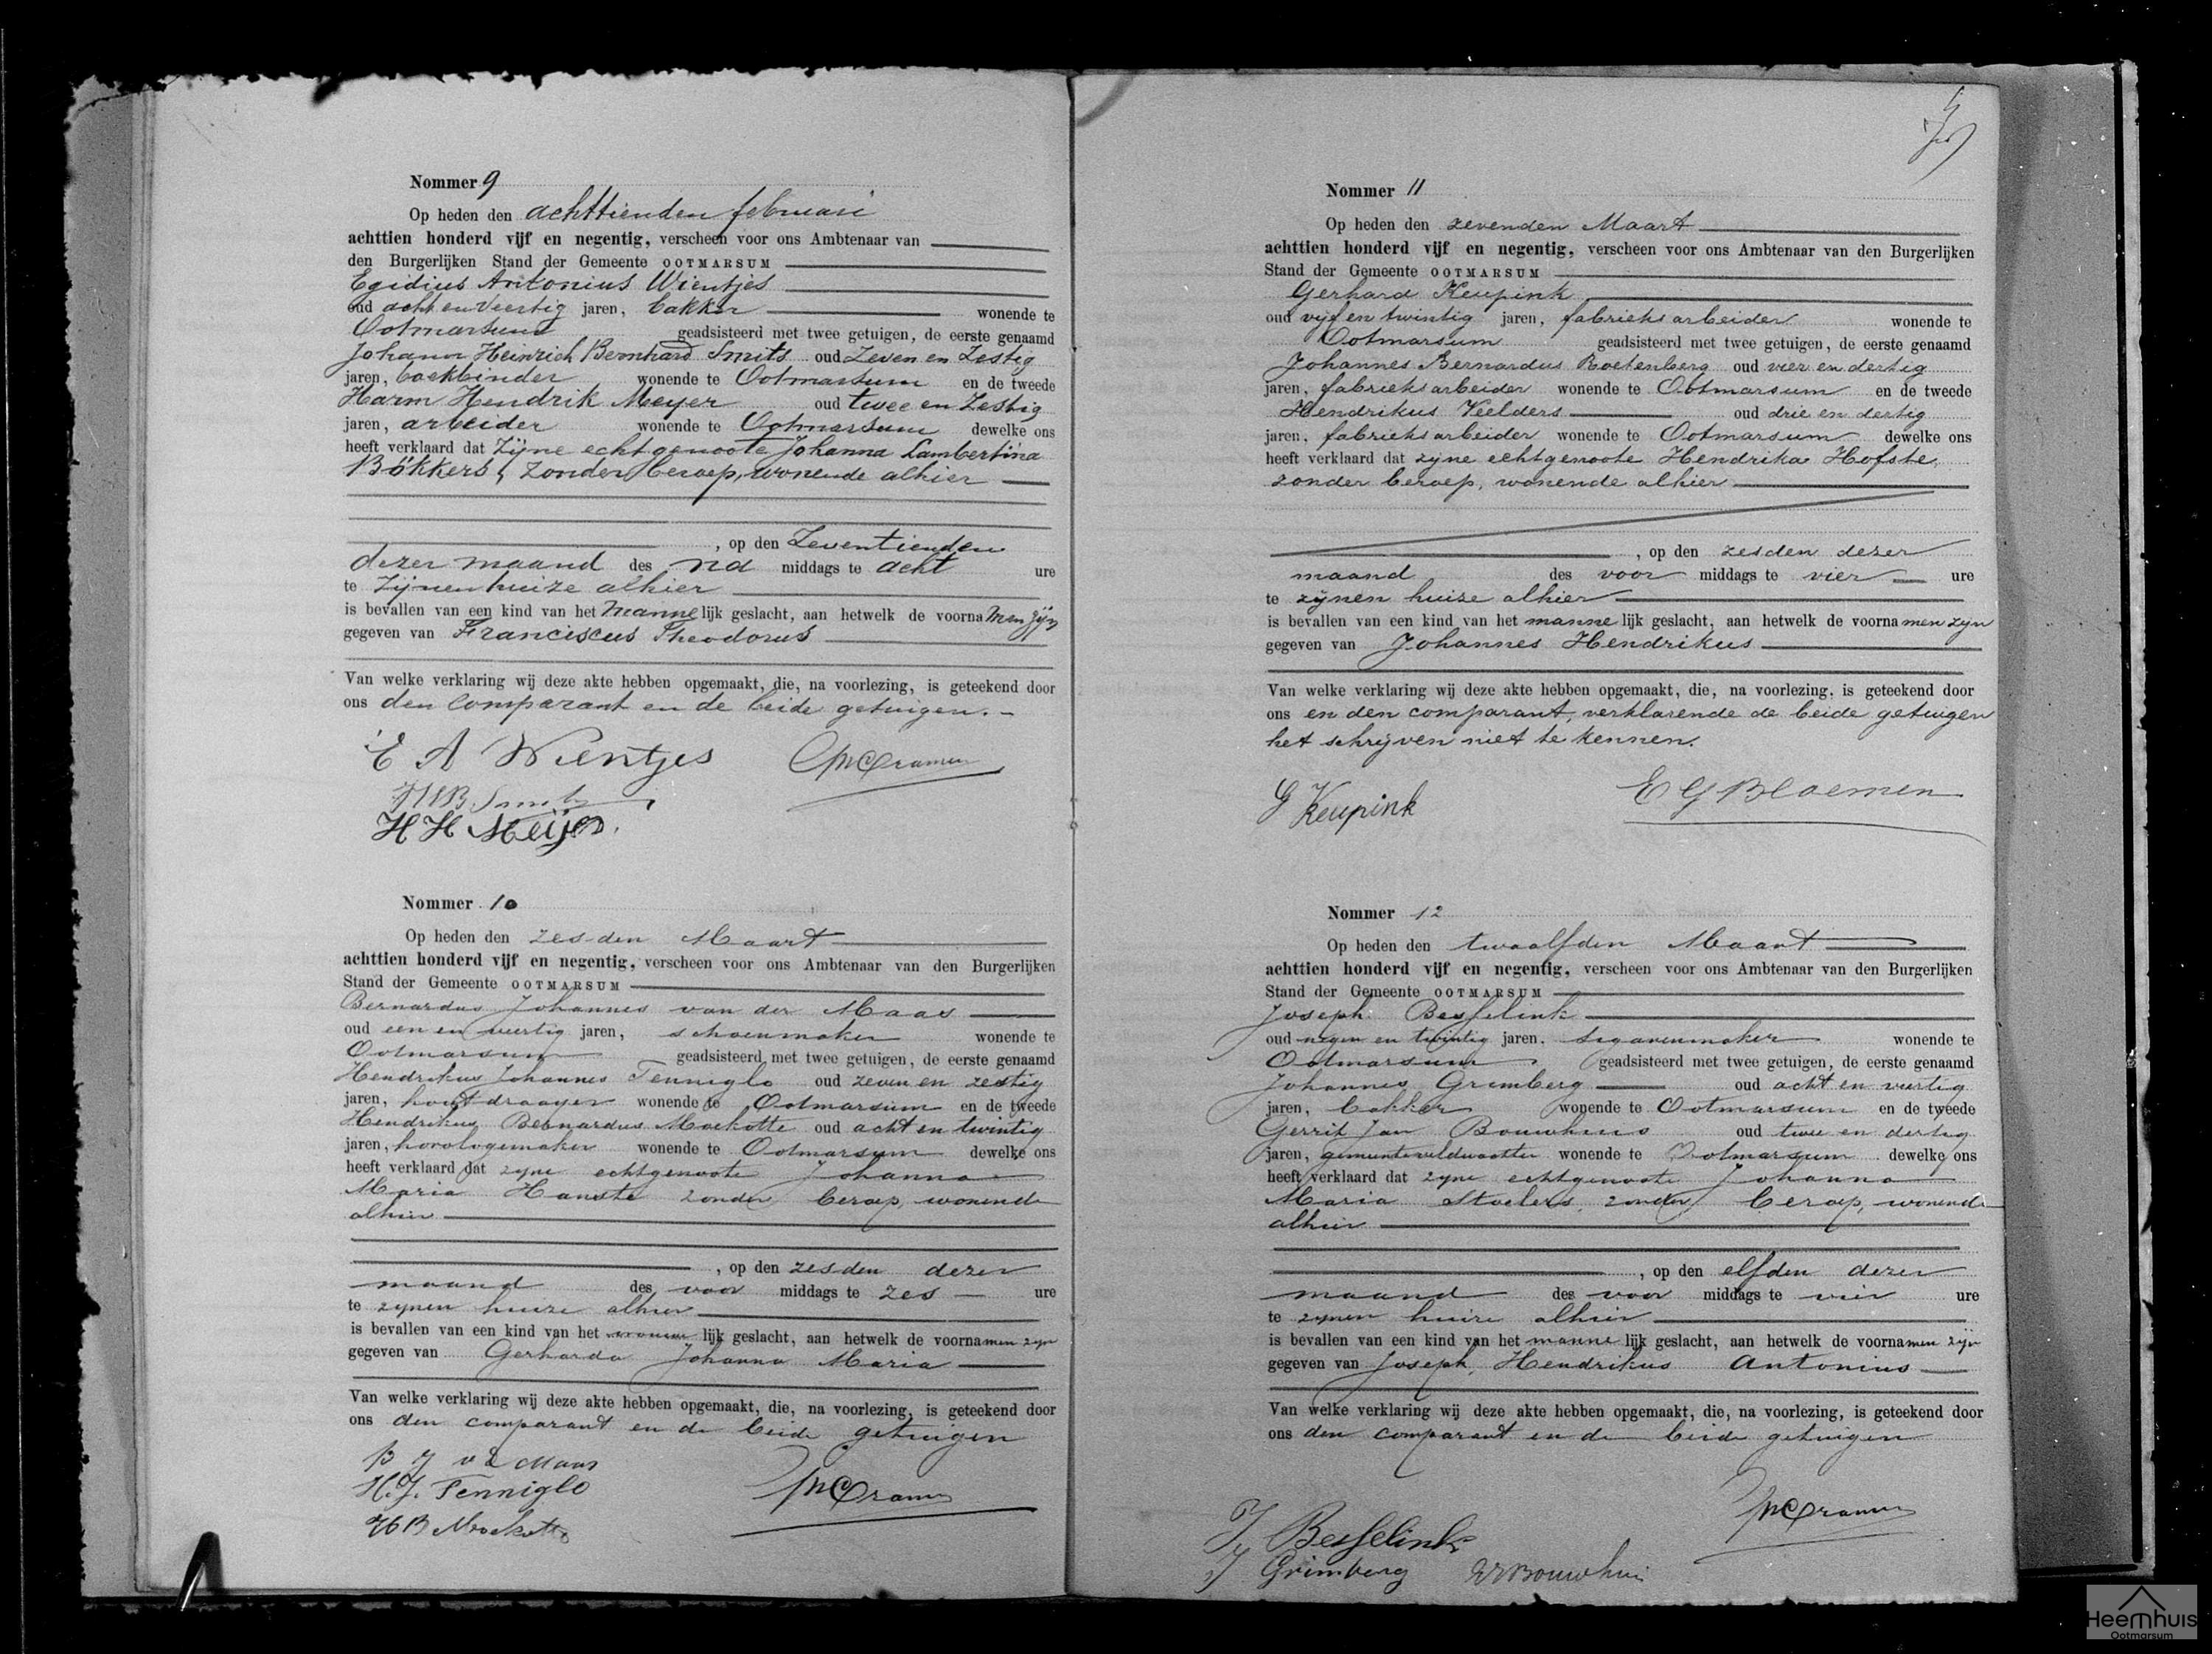 Nommer 9
Op heden den achttienden februari
achttien honderd vijf en negentig, verscheen voor ons Ambtenaar van
den Burgerlijken Stand der Gemeente OOTMARSUM
Egidius Antonius Wientjes
oud acht en veertig jaren, bakker wonende te
Ootmarsum geadsisteerd met twee getuigen, de eerste genaamd
Johann Heinrich Bernhard Smits oud zeven en zestig
jaren, boekbinder wonende te Ootmarsum en de tweede
Harm Hendrik Meyer oud twee en zestig
jaren, arbeider wonende te Ootmarsum dewelke ons
heeft verklaard dat zijne echtgenoote Johanna Lambertina
Bökkers, zonder beroep, wonende alhier
, op den zeventienden
dezer maand des na middags te acht ure
te zijnen huize alhier
is bevallen van een kind van het mannelijk geslacht, aan hetwelk de voornamen zijn
gegeven van Franciscus Theodorus
Van welke verklaring wij deze akte hebben opgemaakt, die, na voorlezing, is geteekend door
ons den comparant en de beide getuigen.
E A Wientjes Cramer
JHB Smits
H H Meijer
Nommer 10
Op heden den zesden Maart
achttien honderd vijf en negentig, verscheen voor ons Ambtenaar van den Burgerlijken
Stand der Gemeente OOTMARSUM
Bernardus Johannes van der Maas
oud een en veertig jaren, schoenmaker wonende te
Ootmarsum geadsisteerd met twee getuigen, de eerste genaamd
Hendrikus Johannes Fenniglo oud zeven en zestig
jaren, wonende te Ootmarsum en de tweede
Hendrikus Bernardus Mockotte oud acht en twintig
jaren, horologemaker wonende te Ootmarsum dewelke ons
heeft verklaard dat zyne echtgenoote Johanna
Maria Hanste zonder beroep, wonende
alhier
, op den zesden dezer
maand des voor middags te zes ure
te zynen huize alhier
is bevallen van een kind van het vrouwelijk geslacht, aan hetwelk de voornamen zyn
gegeven van Gerharda Johanna Maria
Van welke verklaring wij deze akte hebben opgemaakt, die, na voorlezing, is geteekend door
ons den comparant en de beide getuigen
B J v d Maas
H.J. Fenniglo Cramer
HB Mockotte
Nommer 11
Op heden den zevenden Maart
achttien honderd vijf en negentig, verscheen voor ons Ambtenaar van den Burgerlijken
Stand der Gemeente OOTMARSUM
Gerhard Keupink
oud vijf en twintig jaren, fabrieksarbeider wonende te
Ootmarsum geadsisteerd met twee getuigen, de eerste genaamd
Johannes Bernardus Roetenberg oud vier en dertig
jaren, fabrieksarbeider wonende te Ootmarsum en de tweede
Hendrikus Veelders oud drie en dertig
jaren, fabrieksarbeider wonende te Ootmarsum dewelke ons
heeft verklaard dat zyne echtgenoote Hendrika Hofste,
zonder beroep, wonende alhier
, op den zesden dezer
maand des voor middags te vier ure
te zynen huize alhier
is bevallen van een kind van het mannelijk geslacht, aan hetwelk de voornamen zyn
gegeven van Johannes Hendrikus
Van welke verklaring wij deze akte hebben opgemaakt, die, na voorlezing, is geteekend door
ons en den comparant, verklarende de beide getuigen
het schrijven niet te kennen.
G Keupink E G Bloemen
Nommer 12
Op heden den twaalfden Maart
achttien honderd vijf en negentig, verscheen voor ons Ambtenaar van den Burgerlijken
Stand der Gemeente OOTMARSUM
Joseph Besselink
oud negen en twintig jaren, sigarenmaker wonende te
Ootmarsum geadsisteerd met twee getuigen, de eerste genaamd
Johannes Grimberg oud acht en veertig
jaren, bakker wonende te Ootmarsum en de tweede
Gerrit Jan Bouwhuis oud twee en dertig
jaren, gemeenteveldwachter wonende te Ootmarsum dewelke ons
heeft verklaard dat zyne echtgenoote Johanna
Maria Stoelers, zonder beroep, wonende
alhier
, op den elfden dezer
maand des voor middags te vier ure
te zynen huize alhier
is bevallen van een kind van het mannelijk geslacht, aan hetwelk de voornamen zijn
gegeven van Joseph Hendrikus Antonius
Van welke verklaring wij deze akte hebben opgemaakt, die, na voorlezing, is geteekend door
ons den comparant en de beide getuigen
Cramer
J Besselink
J Grimberg Bouwhuis
Heemhuis
Ootmarsum